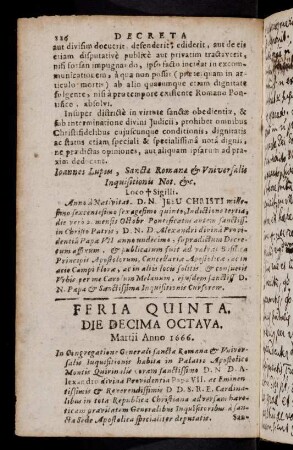 DECRETA
aut divisim docuerit, defenderit, ediderit, aut de eis
etiam disputativè publicè aut privatim tractaverit,
nisi forsan impugnando, ipso facto incidat in excom-
municationem, à qua non possit (præterquam in ar-
ticulo mortis) ab alio quacumque etiam dignitate
fulgente, nisi à pro tempore existente Romano Pon-
tifice, absolvi.
Insuper districtè in virtute sanctæ obedientiæ, &
sub interminatione divini Judicii, prohibet omnibus
Christifidelibus cujuscunque conditionis, dignitatis
ac status etiam speciali & specialissimâ notâ digni,
ne prædictas opiniones, aut aliquam ipsarum ad pra-
xim deducant.
Joannes Lupus, Sancta Romana & Universalis
Inquisitionis Not. &c.
Loco † Sigilli.
Anno à Nativitat. D.N. JESU CHRISTI mille-
simo sexcentesimo sexagesimo quinto, Indictione tertia,
die verò mensis Octobr Pontificatus autem sanctiss.
in Christo Patris, D.N. D. Alexandri divinâ Provi-
dentiâ Papa VII anno undecimo, supradictum Decre-
tum affixum, & publicatum fuit ad Basilicæ
Principis Apostolorum, Cancellaria Apostolica, ac in
acie Campi Floræ, ac in aliis locis solitis & consuetis
Urbis per me
N. Papa & Sanctissima Inquisitionis Cursorem.
FERIA QUINTA,
DIE DECIMA OCTAVA.
Martii Anno 1666.
In Congregatione Generali sancta Romana & Univer-
salis Inquisitionis habita in Palatio Apostolico
Montis Quirinalis coram sanctissimo D.N. D. A-
lexandro divina Providentia Papa VII. ac Eminen-
tissimis & Reverendissimis D D. S. R. E. Cardina-
libus in tota Republica Christiana adversus hære-
ticam pravitatem Generalibus Inquisitoribus à san-
cta Sede Apostolica specialiter deputatis.
San-